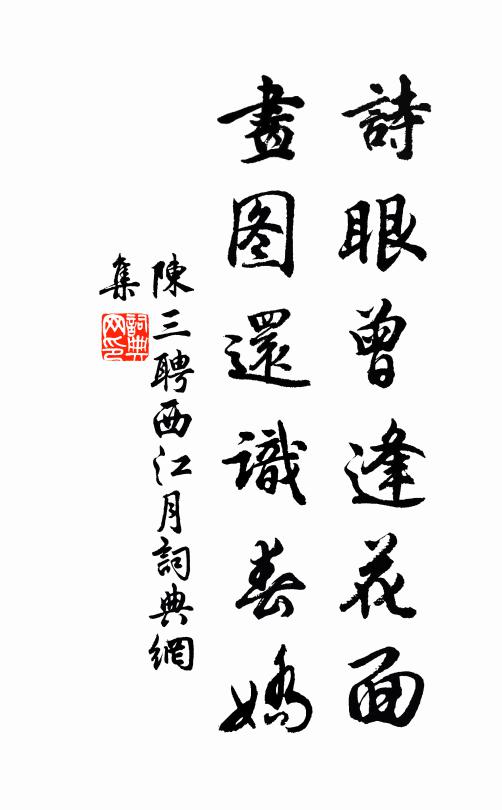 詩眼曾逢花面
畫图還識春嬌
陳三聘西江月詞典網
集
詞典
网印